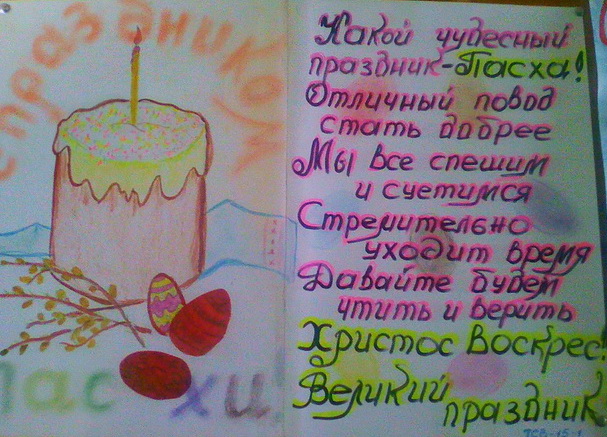 с праздником
пас хи!
Какой чудесный
праздник-Пасха!
Отличный повод
стать добрее
Мы все спешим
и суетимся
Стремительно
уходит время
Давайте будем
чтить и верить
Христос Воскрес!
Великий
праздник
ТСВ-15-1